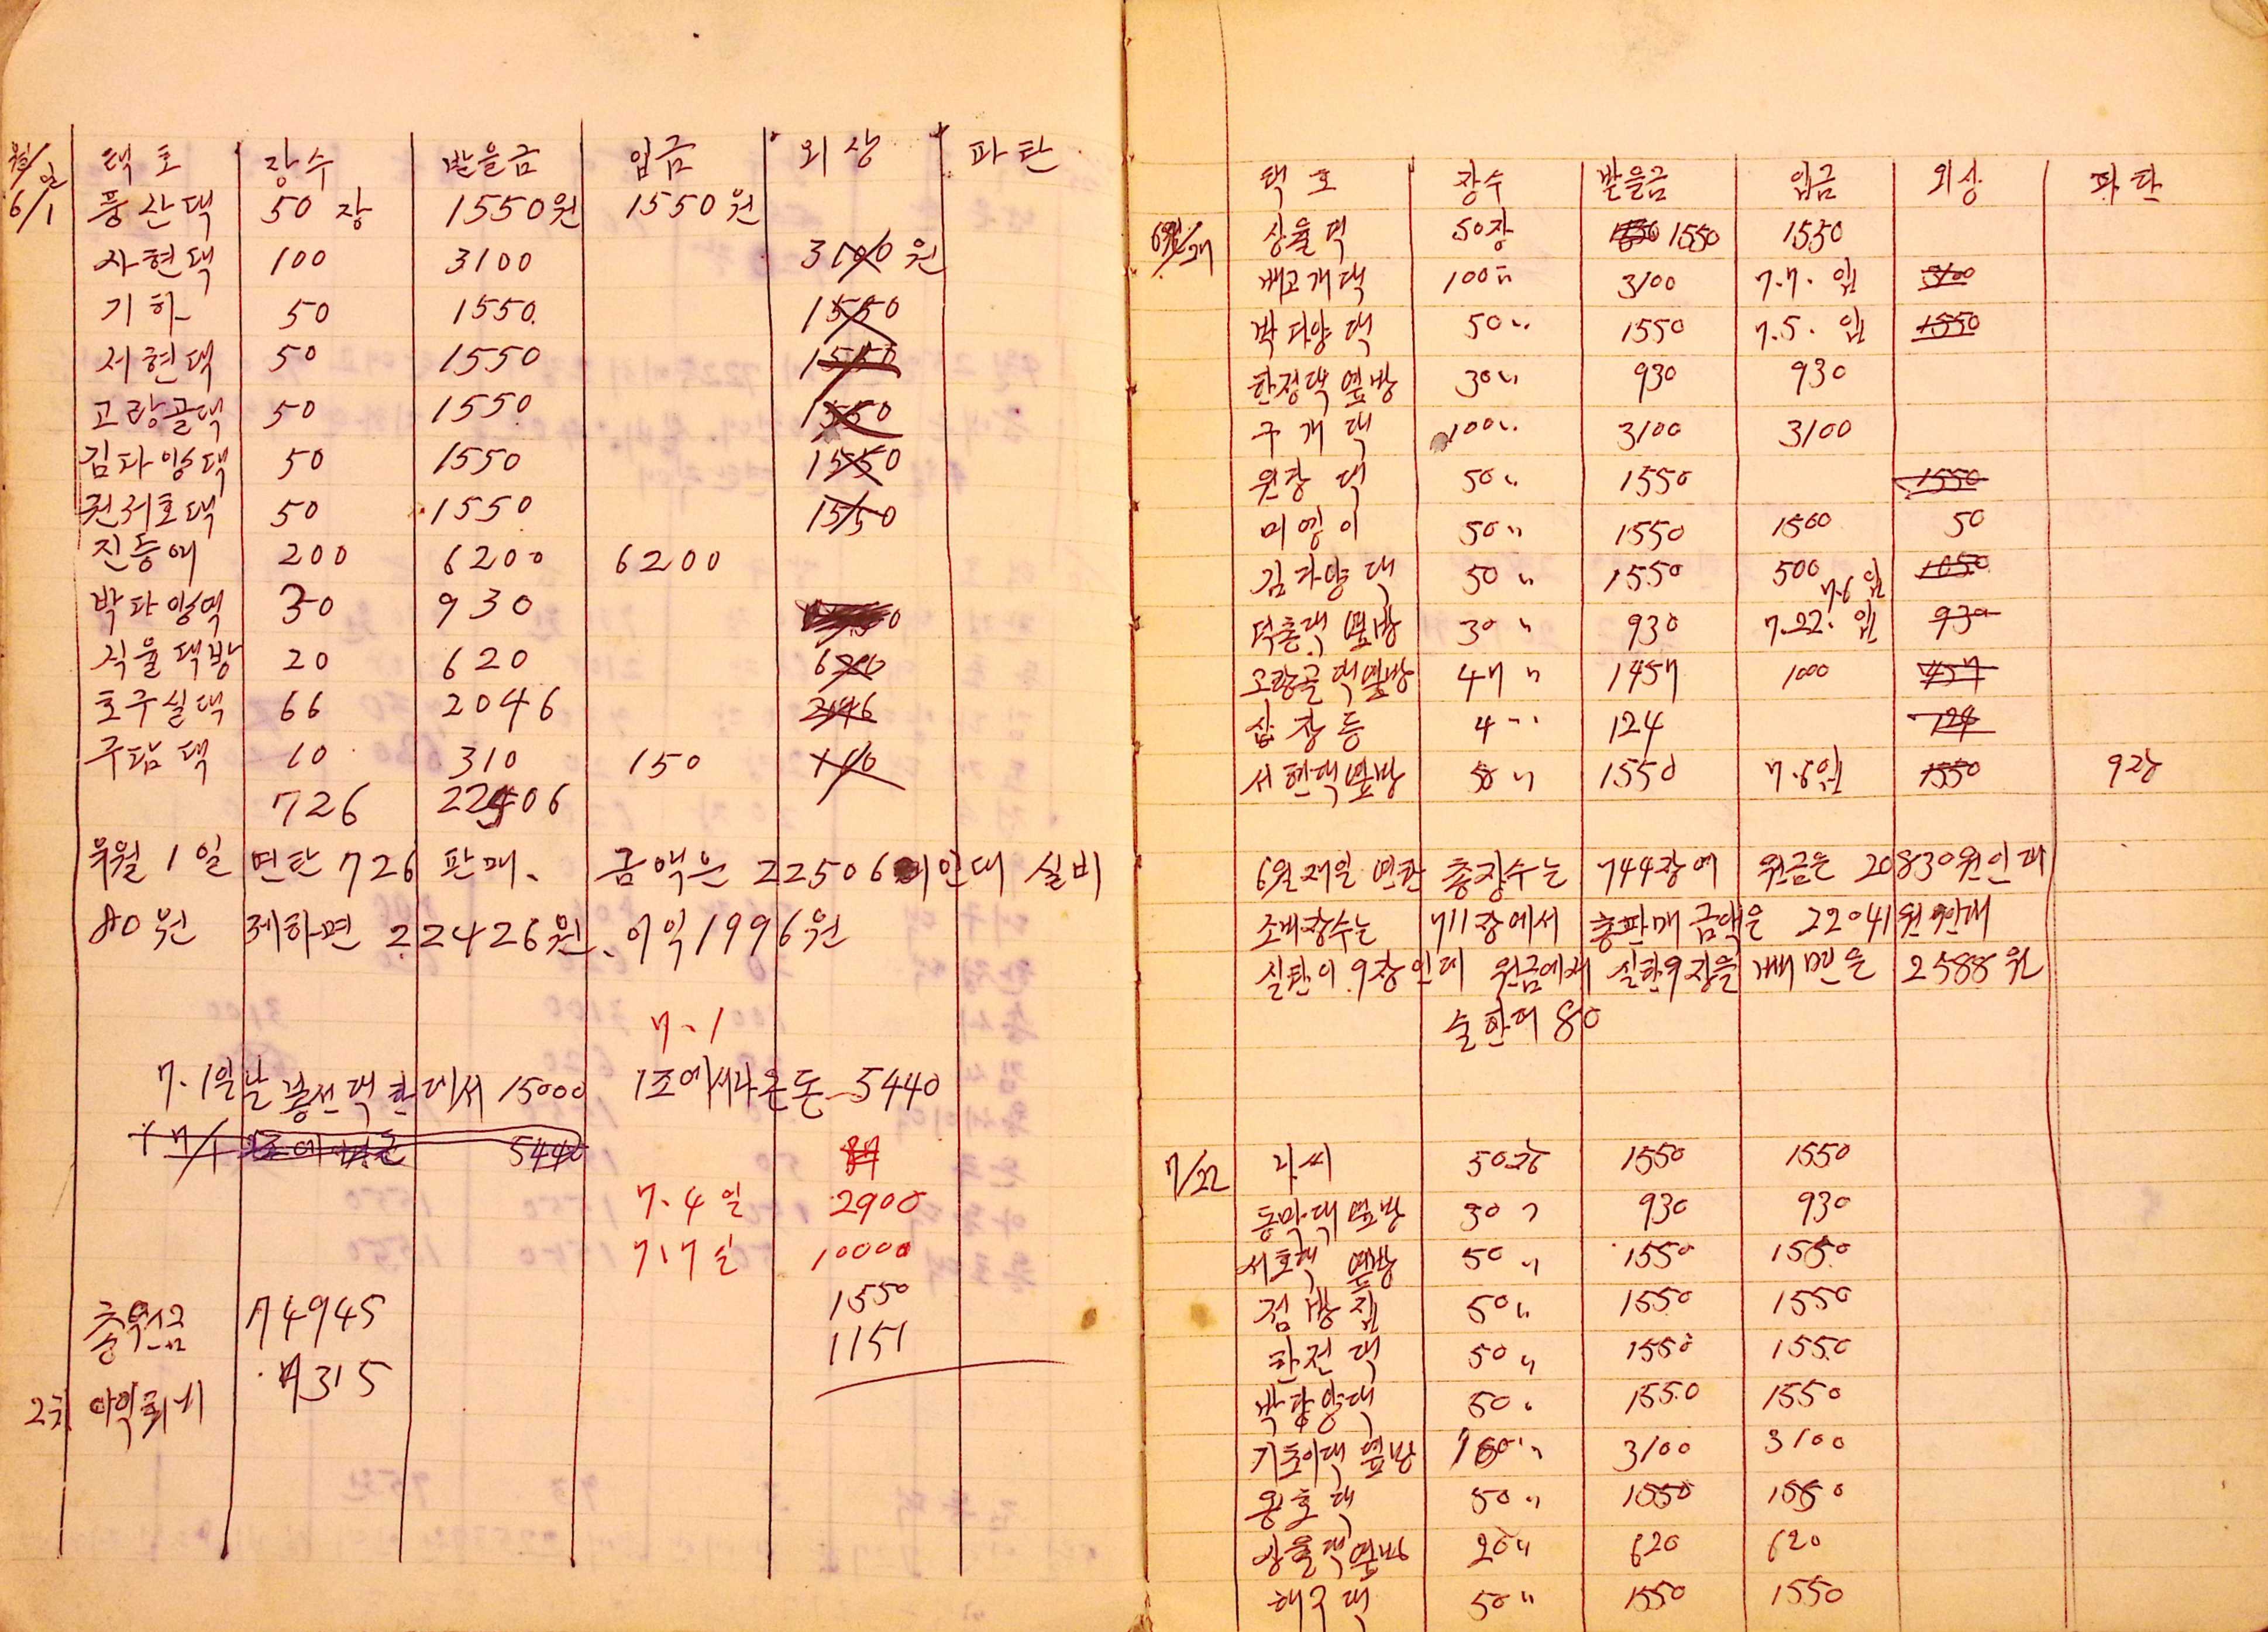 월/일 택호 장수 발을금 입금 외상 파탄
6/1 풍산댁 50장 1550원 1550원
사현댁 100 3100 3100원
기하 50 1550 1550
서현댁 50 1550 1550
고랑골댁 50 1550 1550
김다양댁 50 1550 1550
권서호댁 50 1550 1550
진등에 200 6200 6200
박다양댁 30 930
식율댁방 20 620 620
호구실댁 66 2046 2046
구담댁 10 310 150 160
726 22506
6월 1일 면탄 726 판매、 금액은 22506 인대 실비
80원 제하면 22426원、이익 1996원
7、1
7、1일날 봉선댁한데서 15000 1조에서나온돈 5440
7/1 5440
7、4일 2900
7、7일 10000
1550
1151
총원금 74945
7315
택호 장수 발을금 입금 외상 파탄
6월/27 상율댁 50장 1550 1550
배고개댁 100〃 3100 7.7. 입 3100
박다양댁 50〃 1550 7.5. 입 1550
한정댁옆방 30〃 930 930
구개댁 100〃 3100 3100
원장댁 50〃 1550 1550
미영이 50〃 1550 1500 50
김다양댁 50〃 1550 500 7.6입 1050
덕촌댁옆방 30〃 930 7.22. 입 930
고랑골댁옆방 47〃 1457 1000 457
삼장등 4〃 124 124
서현댁옆방 50〃 1550 7.6입 1550 9장
6월27일 면탄 총장수는 744장에 원금은 20830원인대
소매장수는 711장에서 총판매금액은 22041원인대
실탄이 9장인데 원금에서 실탄9장을 빼면은 2588원
술한대 80
7/22 50장 1550 1550
동막댁옆방 30〃 930 930
서호댁옆방 50〃 1550 1550
점방집 50〃 1550 1550
한전댁 50〃 1550 1550
박다양댁 50〃 1550 1550
기호이댁옆방 100〃 3100 3100
용호댁 50〃 1550 1550
상율댁옆방 20〃 620 620
해구댁 50〃 1550 1550